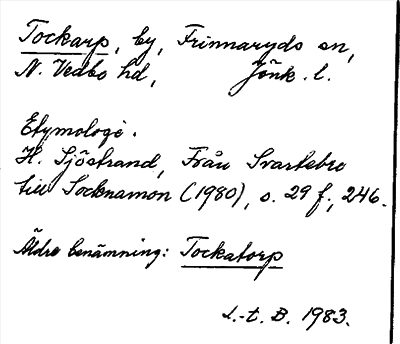 Tockarp, by, Frinnaryds sn,
N. Vedbo hd, Jönk. l.
Etymologi.
H. Sjöstrand, Från Svartebro
till Socknamon (1980), s. 29 f., 246.
Äldre benämning: Tockatorp
L.-t. B. 1983.